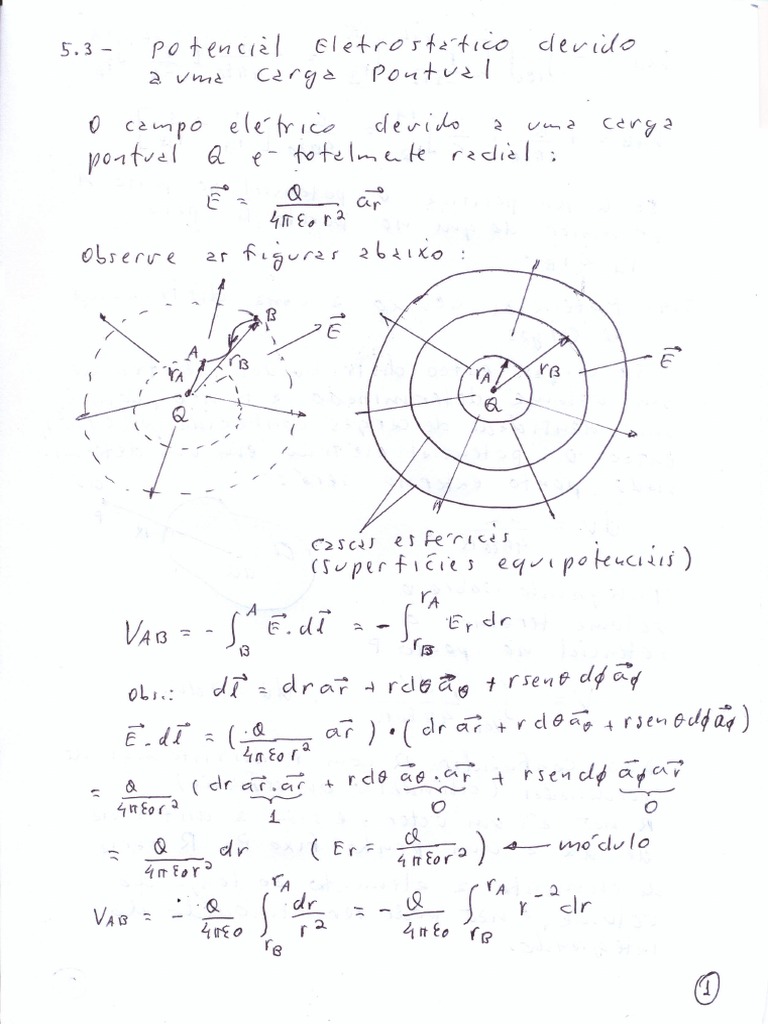 5.3 - Potencial Eletrostático devido
a uma carga Pontual
O campo elétrico devido a uma carga
pontual Q é totalmente radial:
E⃗ = Q/(4πε₀r²) a⃗r
Observe as figuras abaixo:
B
E⃗
A
rA
rB
Q
rA
rB
E⃗
Q
cascas esféricas
(superfícies equipotenciais)
V_AB = - ∫_B^A E⃗ . dl⃗ = - ∫_{rB}^{rA} Er dr
Obs.: dl⃗ = dr a⃗r + r dθ a⃗θ + r senθ dϕ a⃗ϕ
E⃗ . dl⃗ = ( Q/(4πε₀r²) a⃗r ) • (dr a⃗r + r dθ a⃗θ + r senθ dϕ a⃗ϕ)
= Q/(4πε₀r²) (dr a⃗r . a⃗r + r dθ a⃗θ . a⃗r + r sen dϕ a⃗ϕ a⃗r
1 0 0
= Q/(4πε₀r²) dr (Er = Q/(4πε₀r²)) ← módulo
V_AB = - Q/(4πε₀) ∫_{rB}^{rA} dr/r² = - Q/(4πε₀) ∫_{rB}^{rA} r⁻² dr
1